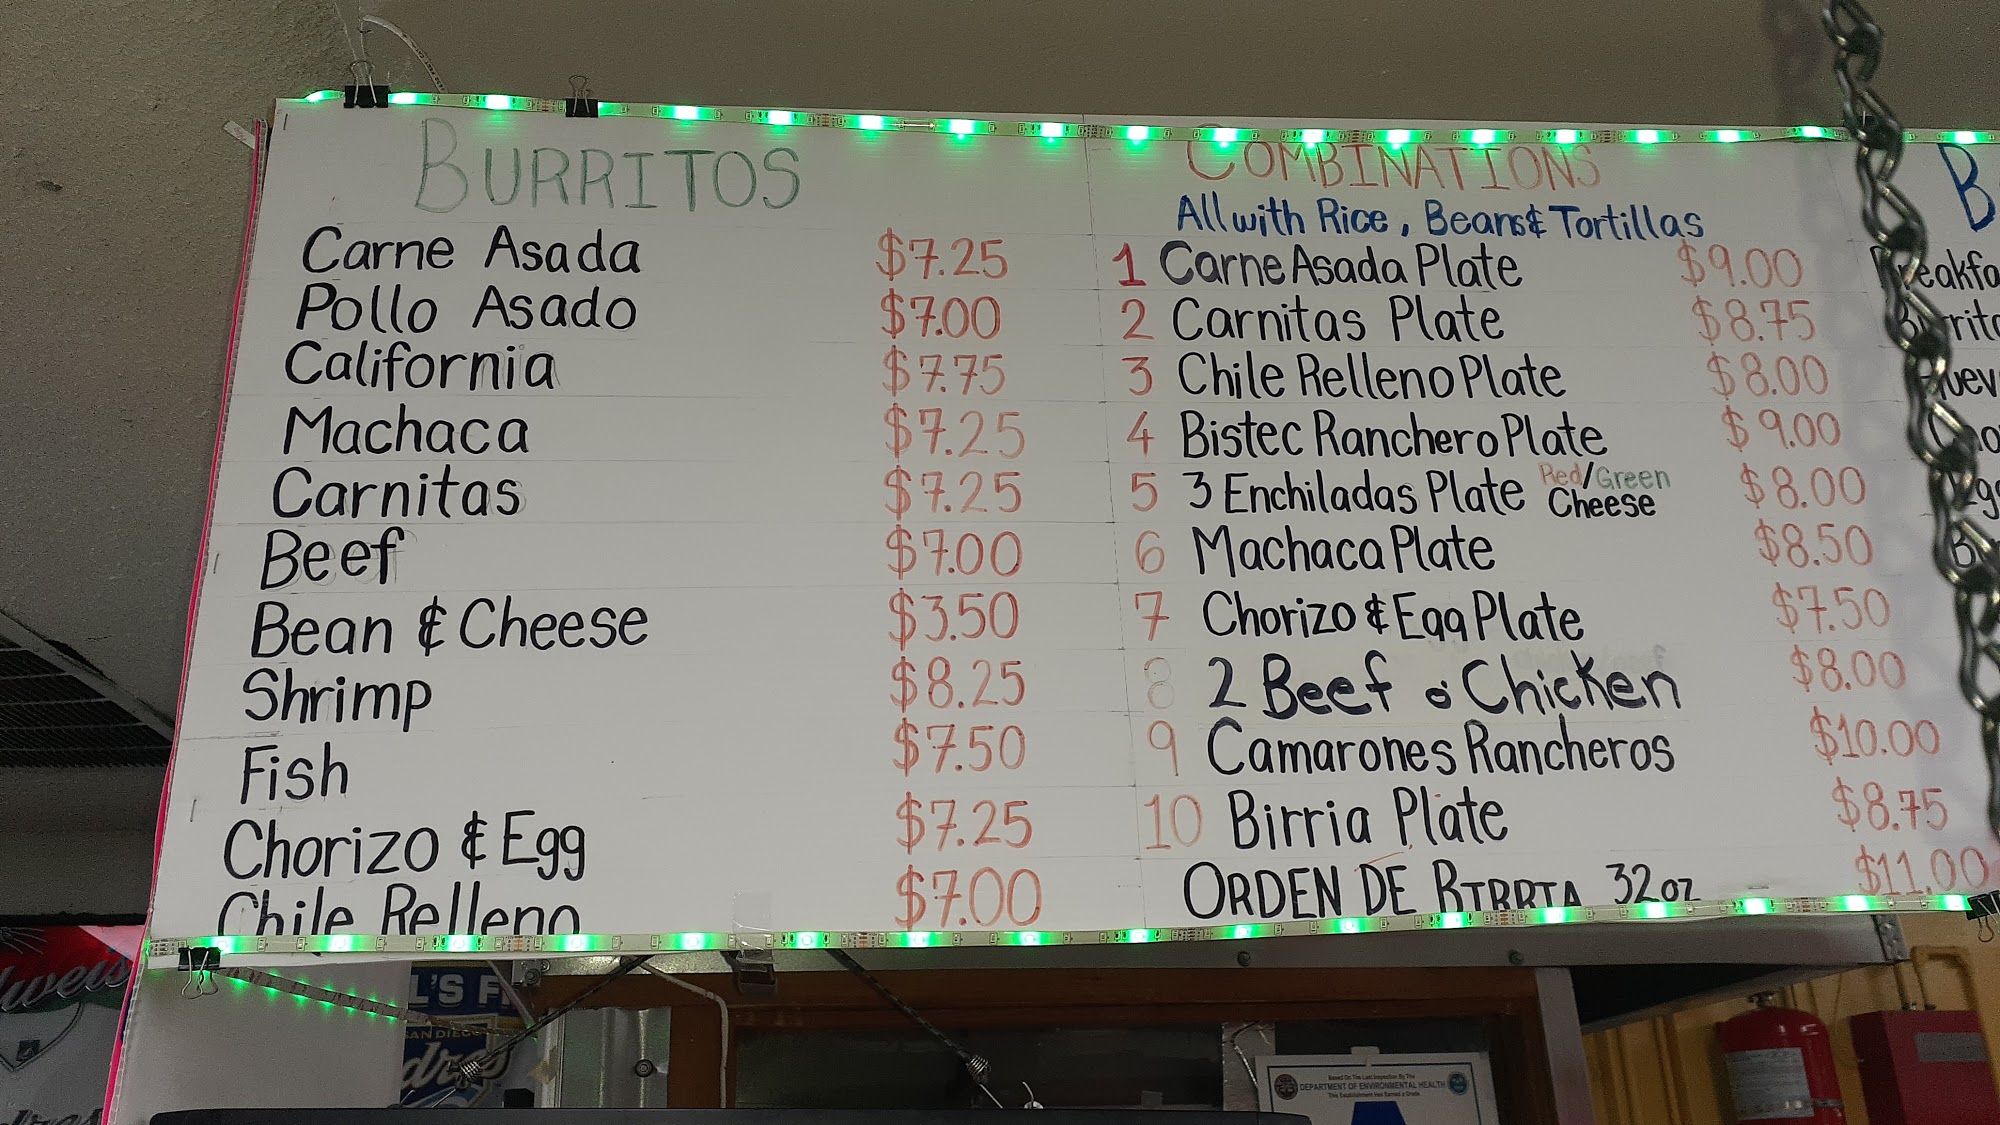 BURRITOS
Carne Asada $7.25
Pollo Asado $7.00
California $7.75
Machaca $7.25
Carnitas $7.25
Beef $7.00
Bean & Cheese $3.50
Shrimp $8.25
Fish $7.50
Chorizo & Egg $7.25
Chile Relleno $7.00
COMBINATIONS
All with Rice, Beans & Tortillas
1 Carne Asada Plate $9.00
2 Carnitas Plate $8.75
3 Chile Relleno Plate $8.00
4 Bistec Ranchero Plate $9.00
5 3 Enchiladas Plate Red/Green Cheese $8.00
6 Machaca Plate $8.50
7 Chorizo & Egg Plate $7.50
8 2 Beef o Chicken $8.00
9 Camarones Rancheros $10.00
10 Birria Plate $8.75
ORDEN DE BIRRIA 32oz $11.00
L'S F
SAN DIEGO
dres
Based On The Last Inspection By The
DEPARTMENT OF ENVIRONMENTAL HEALTH
This Establishment Has Earned a Grade
A